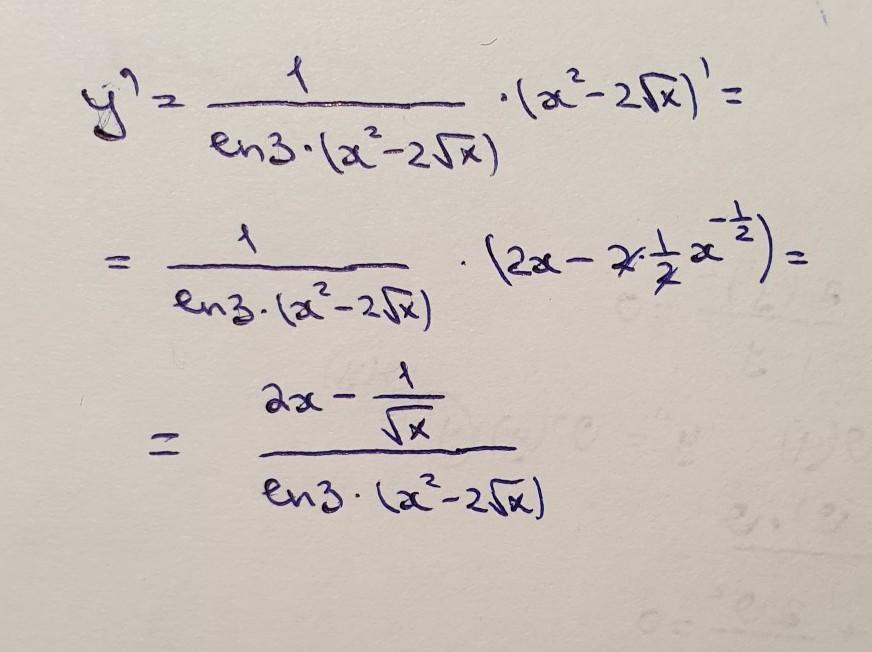 y' = 1/(ln3·(x²-2√x)) ·(x²-2√x)' =
= 1/(ln3·(x²-2√x)) · (2x - 2·1/2 x^(-1/2)) =
= (2x - 1/√x)/(ln3·(x²-2√x))